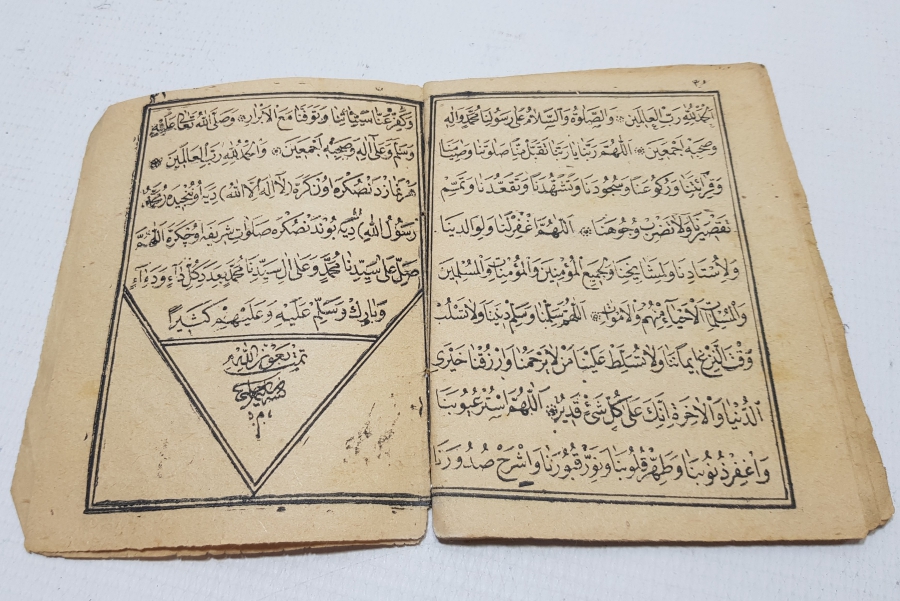 الحمد لله رب العالمين والصلوة والسلام على رسولنا محمد واله
وصحبه اجمعين اللهم ربنا يا ربنا تقبل منا صلوتنا وصيامنا
وقرائتنا وركوعنا وسجودنا وتشهدنا وتقعدنا وتمم
تقصيرنا ولا تضرب وجوهنا اللهم اغفر لنا ولوالدينا
ولاستادنا ولمشايخنا ولجميع المؤمنين والمؤمنات والمسلمين
والمسلمات الاحياء منهم والاموات اللهم سلمنا وسلم ديننا ولا تسلب
وقت النزع ايماننا ولا تسلط علينا من لا يرحمنا وارزقنا خيري
الدنيا والاخرة انك على كل شئ قدير اللهم استر عيوبنا
واغفر ذنوبنا وطهر قلوبنا ونور قبورنا واشرح صدورنا
وكفر عنا سيئاتنا وتوفنا مع الابرار وصلى الله تعالى عليه
وسلم وعلى آله وصحبه اجمعين والحمد لله رب العالمين
(لا اله الا الله)
رسول الله) صلوات شريفه اللهم
صل على سيدنا محمد وعلى ال سيدنا محمد بعدد كل داء ودواء
وبارك وسلم عليه وعليهم كثيرا
تمت بعون الله